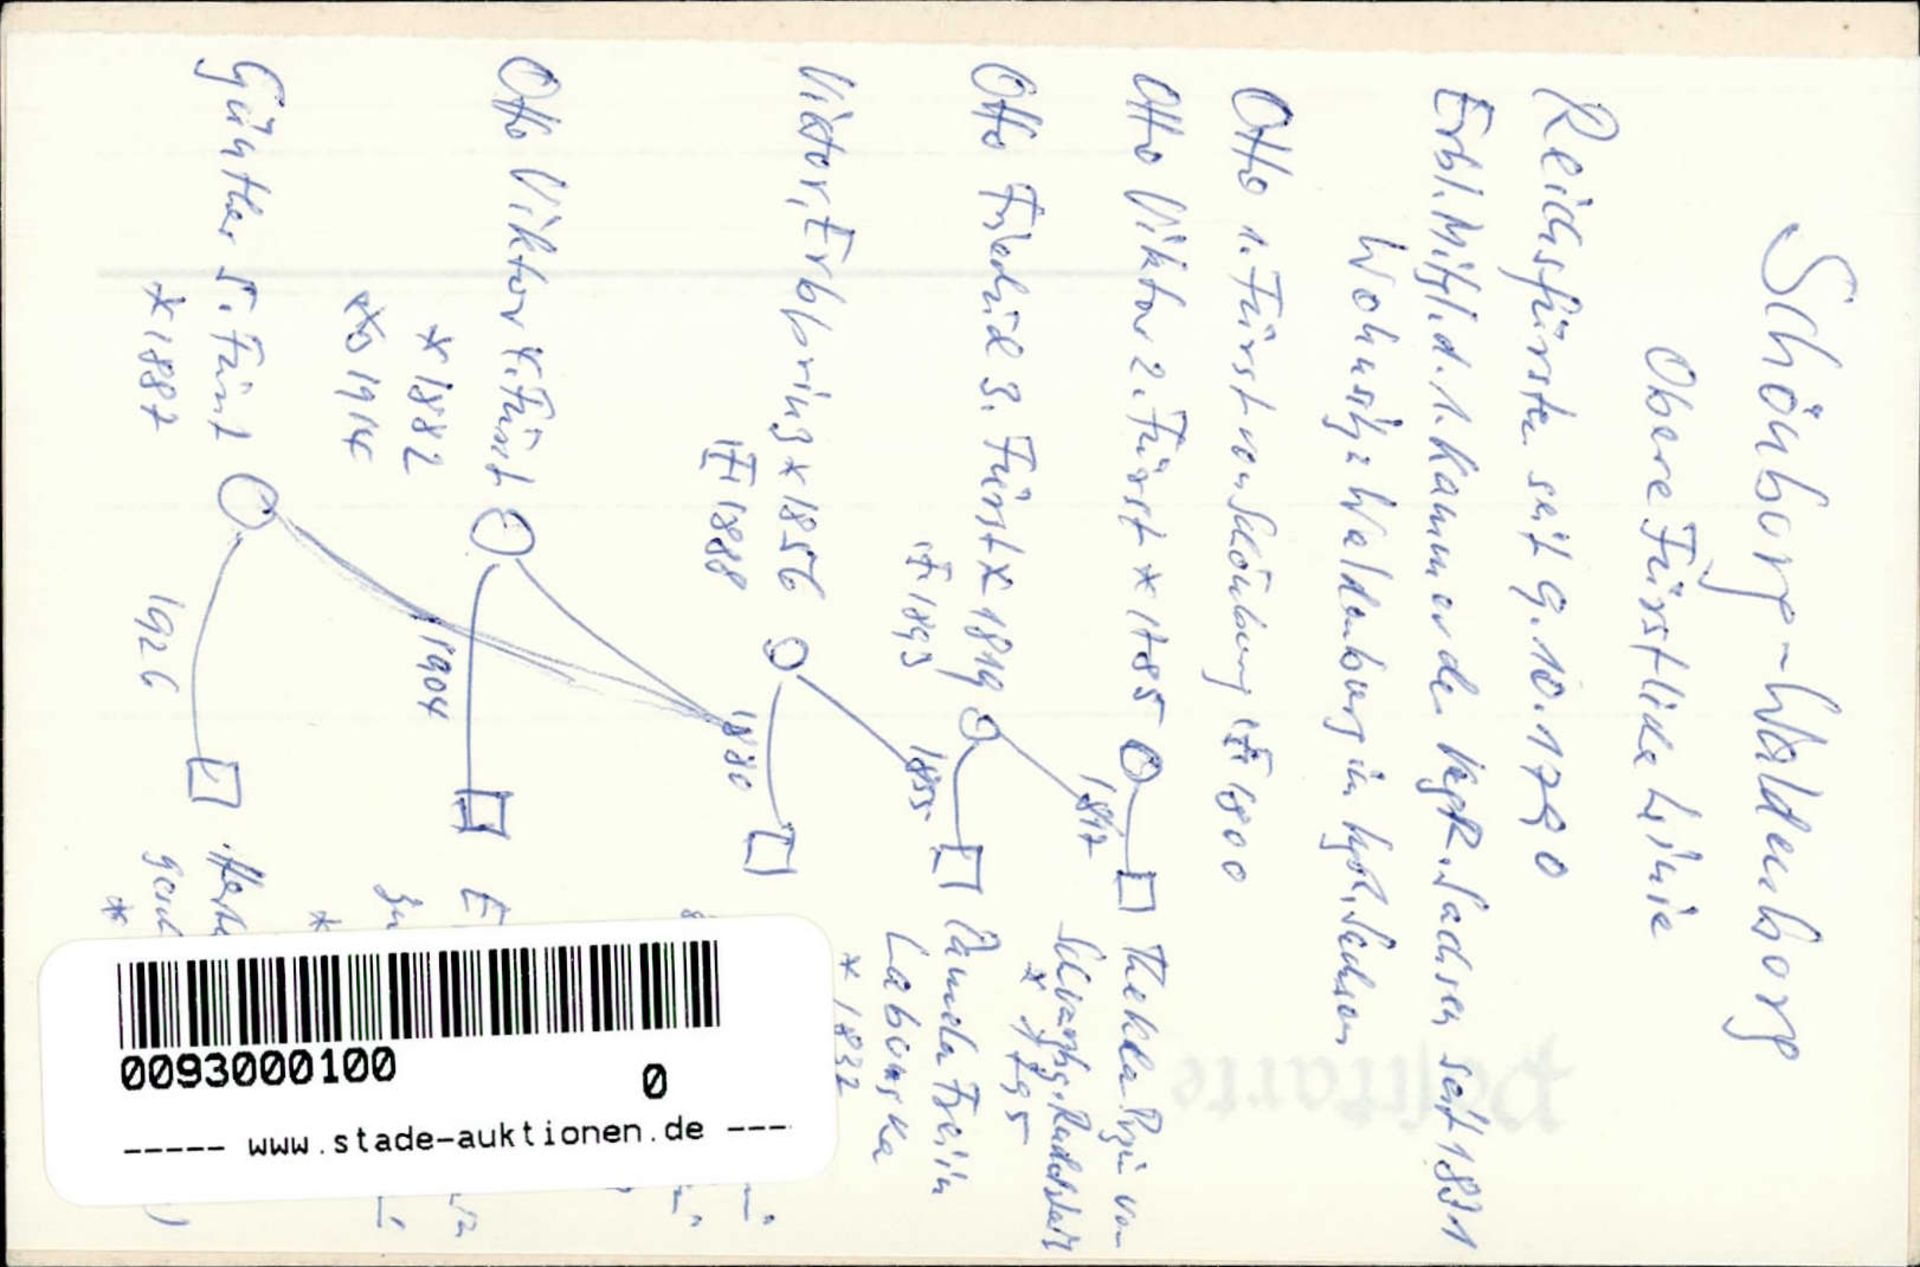 Schönburg-Waldenburg
Obere Fürstliche Linie
Reichsfürsten seit 9.10.1790
Erbl. Mitgl. d. 1. Kammer des Kgr. Sachsen seit 1831
Wohnsitz: Waldenburg in Kgr. Sachsen
Otto 1. Fürst von Schönburg ✝ 1800
Otto Viktor 2. Fürst * 1785
Thekla Przin von
1817
Schwarzbg. Rudolstadt
* 1795
Otto Friedrich 3. Fürst * 1819
Pamela Freiin
✝ 1893
1855
Labunska
* 1832
Viktor, Erbprinz * 1856
✝ 1888
1880
Otto Viktor 4. Fürst
* 1882
1914
1904
Günther 5. Fürst
* 1887
1926
Postkarte
0093000100
0
----- www.stade-auktionen.de ---